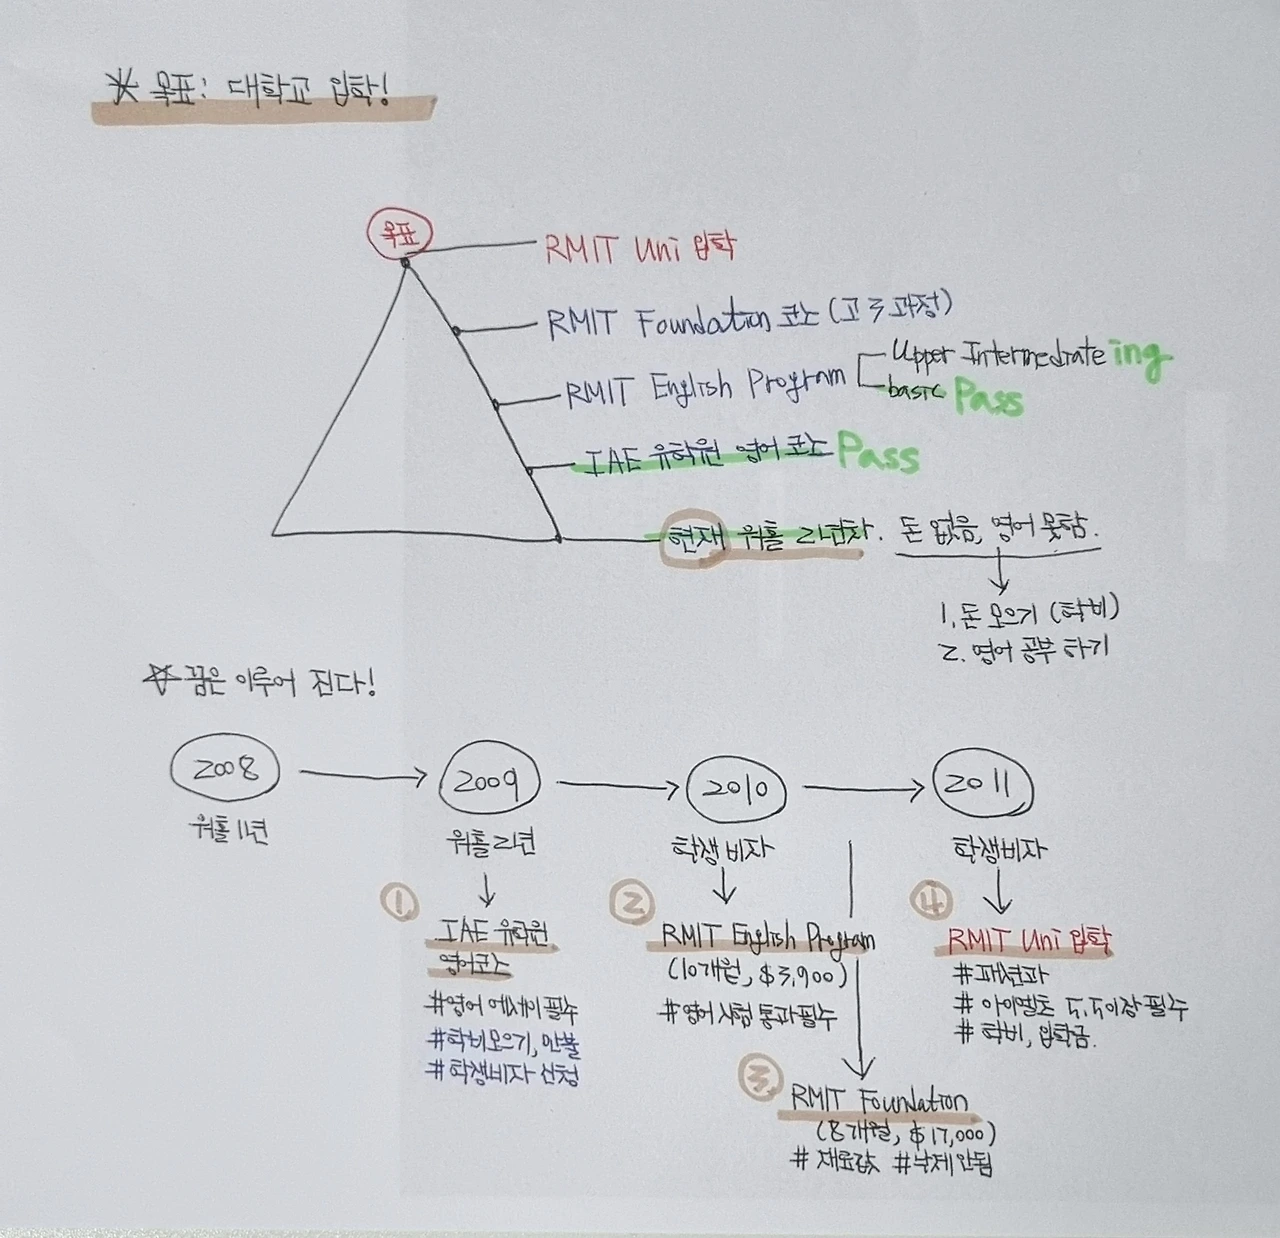 * 목표: 대학교 입학!
목표
RMIT Uni 입학
RMIT Foundation 코스 (고3 과정)
RMIT English Program
Upper Intermedrate ing
basic Pass
IAE 유학원 영어코스 Pass
현재 워홀 2년차. 돈 없음, 영어 못함.
1. 돈 모으기 (학비)
2. 영어 공부 하기
☆ 꿈은 이루어 진다!
2008 → 2009 → 2010 → 2011
워홀 1년 워홀 2년 학생비자 학생비자
① ② ④
IAE 유학원 RMIT English Program RMIT Uni 입학
영어코스 (10개월, $3,900) #패션과
#영어 에세이 필수 #영어 시험 통과 필수 #아이엘츠 5.5이상 필수
#학비모으기, 만불 #학비, 입학금.
#학생비자 신청
③ RMIT Foundation
(8개월, $17,000)
#재료값 #낙제 안됨